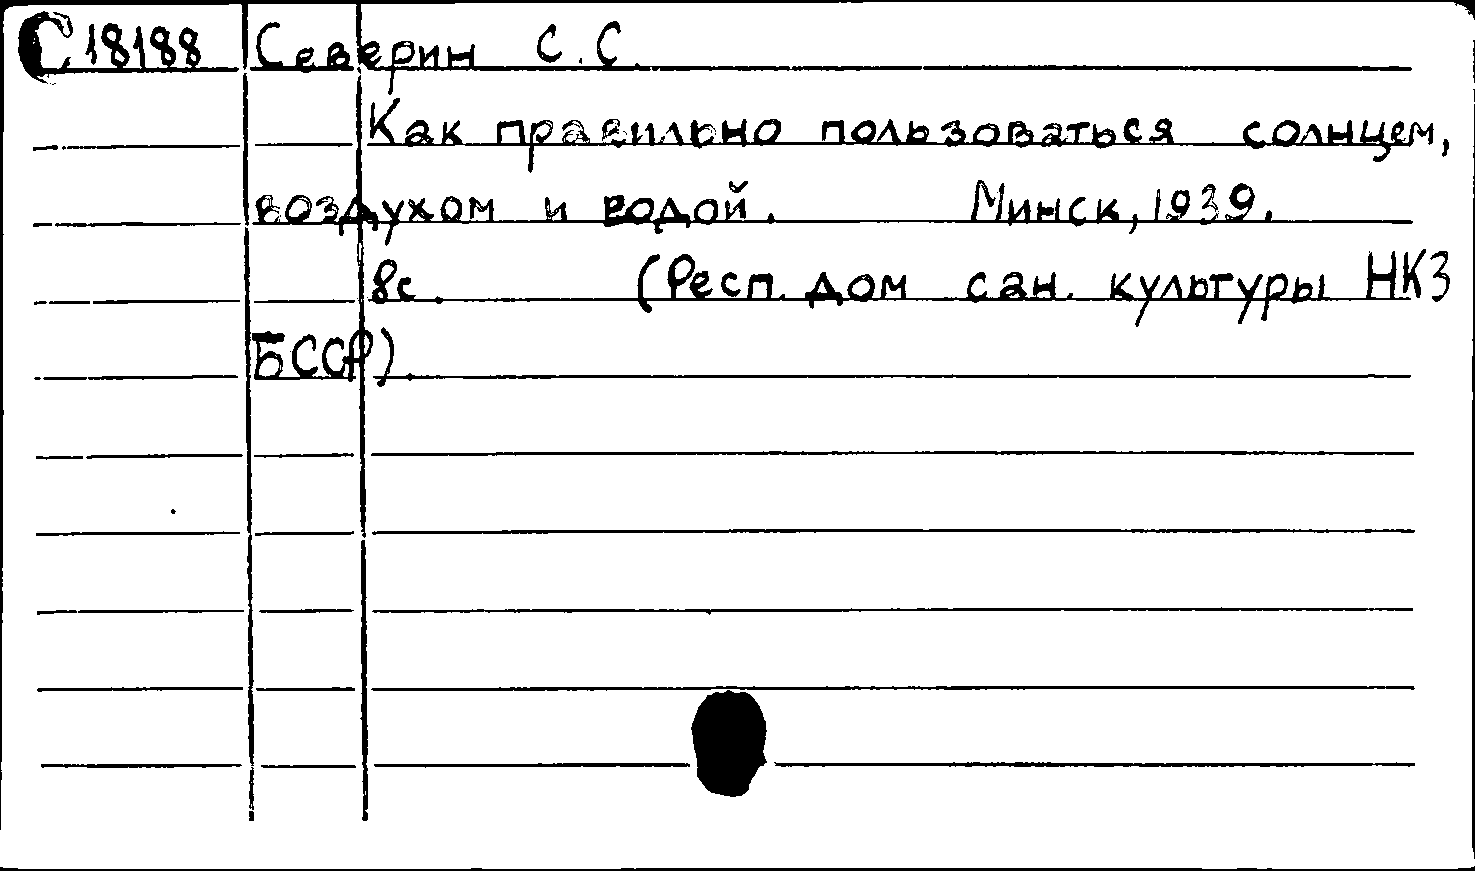 С18188 Северин С.С.
Как правильно пользоваться солнцем,
воздухом и водой. Минск, 1939.
8с. (Респ. дом сан. культуры НКЗ
БССР).